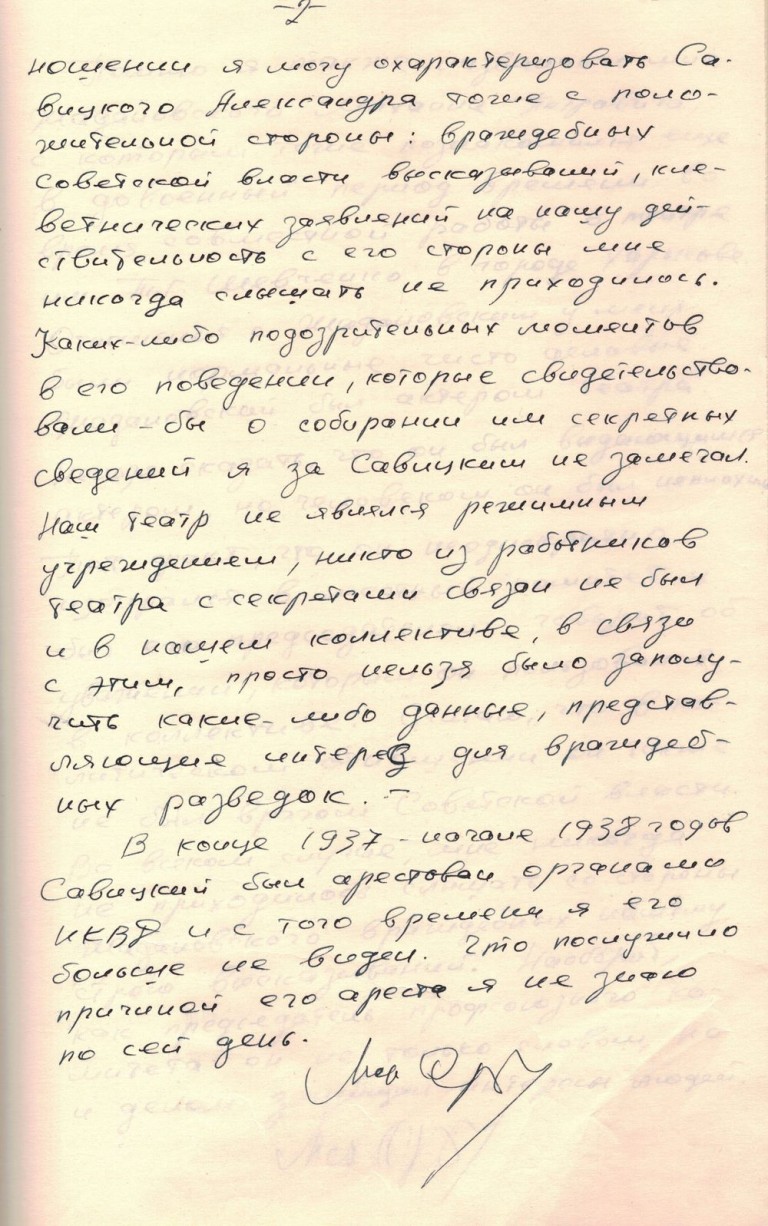 -2-
ношении я могу охарактеризовать Са-
вицкого Александра тоже с поло-
жительной стороны: враждебных
советской власти высказываний, кле-
ветнических заявлений на нашу дей-
ствительность с его стороны мне
никогда слышать не приходилось.
Каких-либо подозрительных моментов
в его поведении, которые свидетельство-
вали-бы о собирании им секретных
сведений я за Савицким не замечал.
Наш театр не являлся режимным
учреждением, никто из работников
театра с секретами связан не был
и в нашем коллективе, в связи
с этим, просто нельзя было заполу-
чить какие-либо данные, представ-
ляющие интерес для враждеб-
ных разведок. –
В конце 1937 - начале 1938 годов
Савицкий был арестован органами
НКВД и с того времени я его
больше не видел. Что послужило
причиной его ареста я не знаю
по сей день.